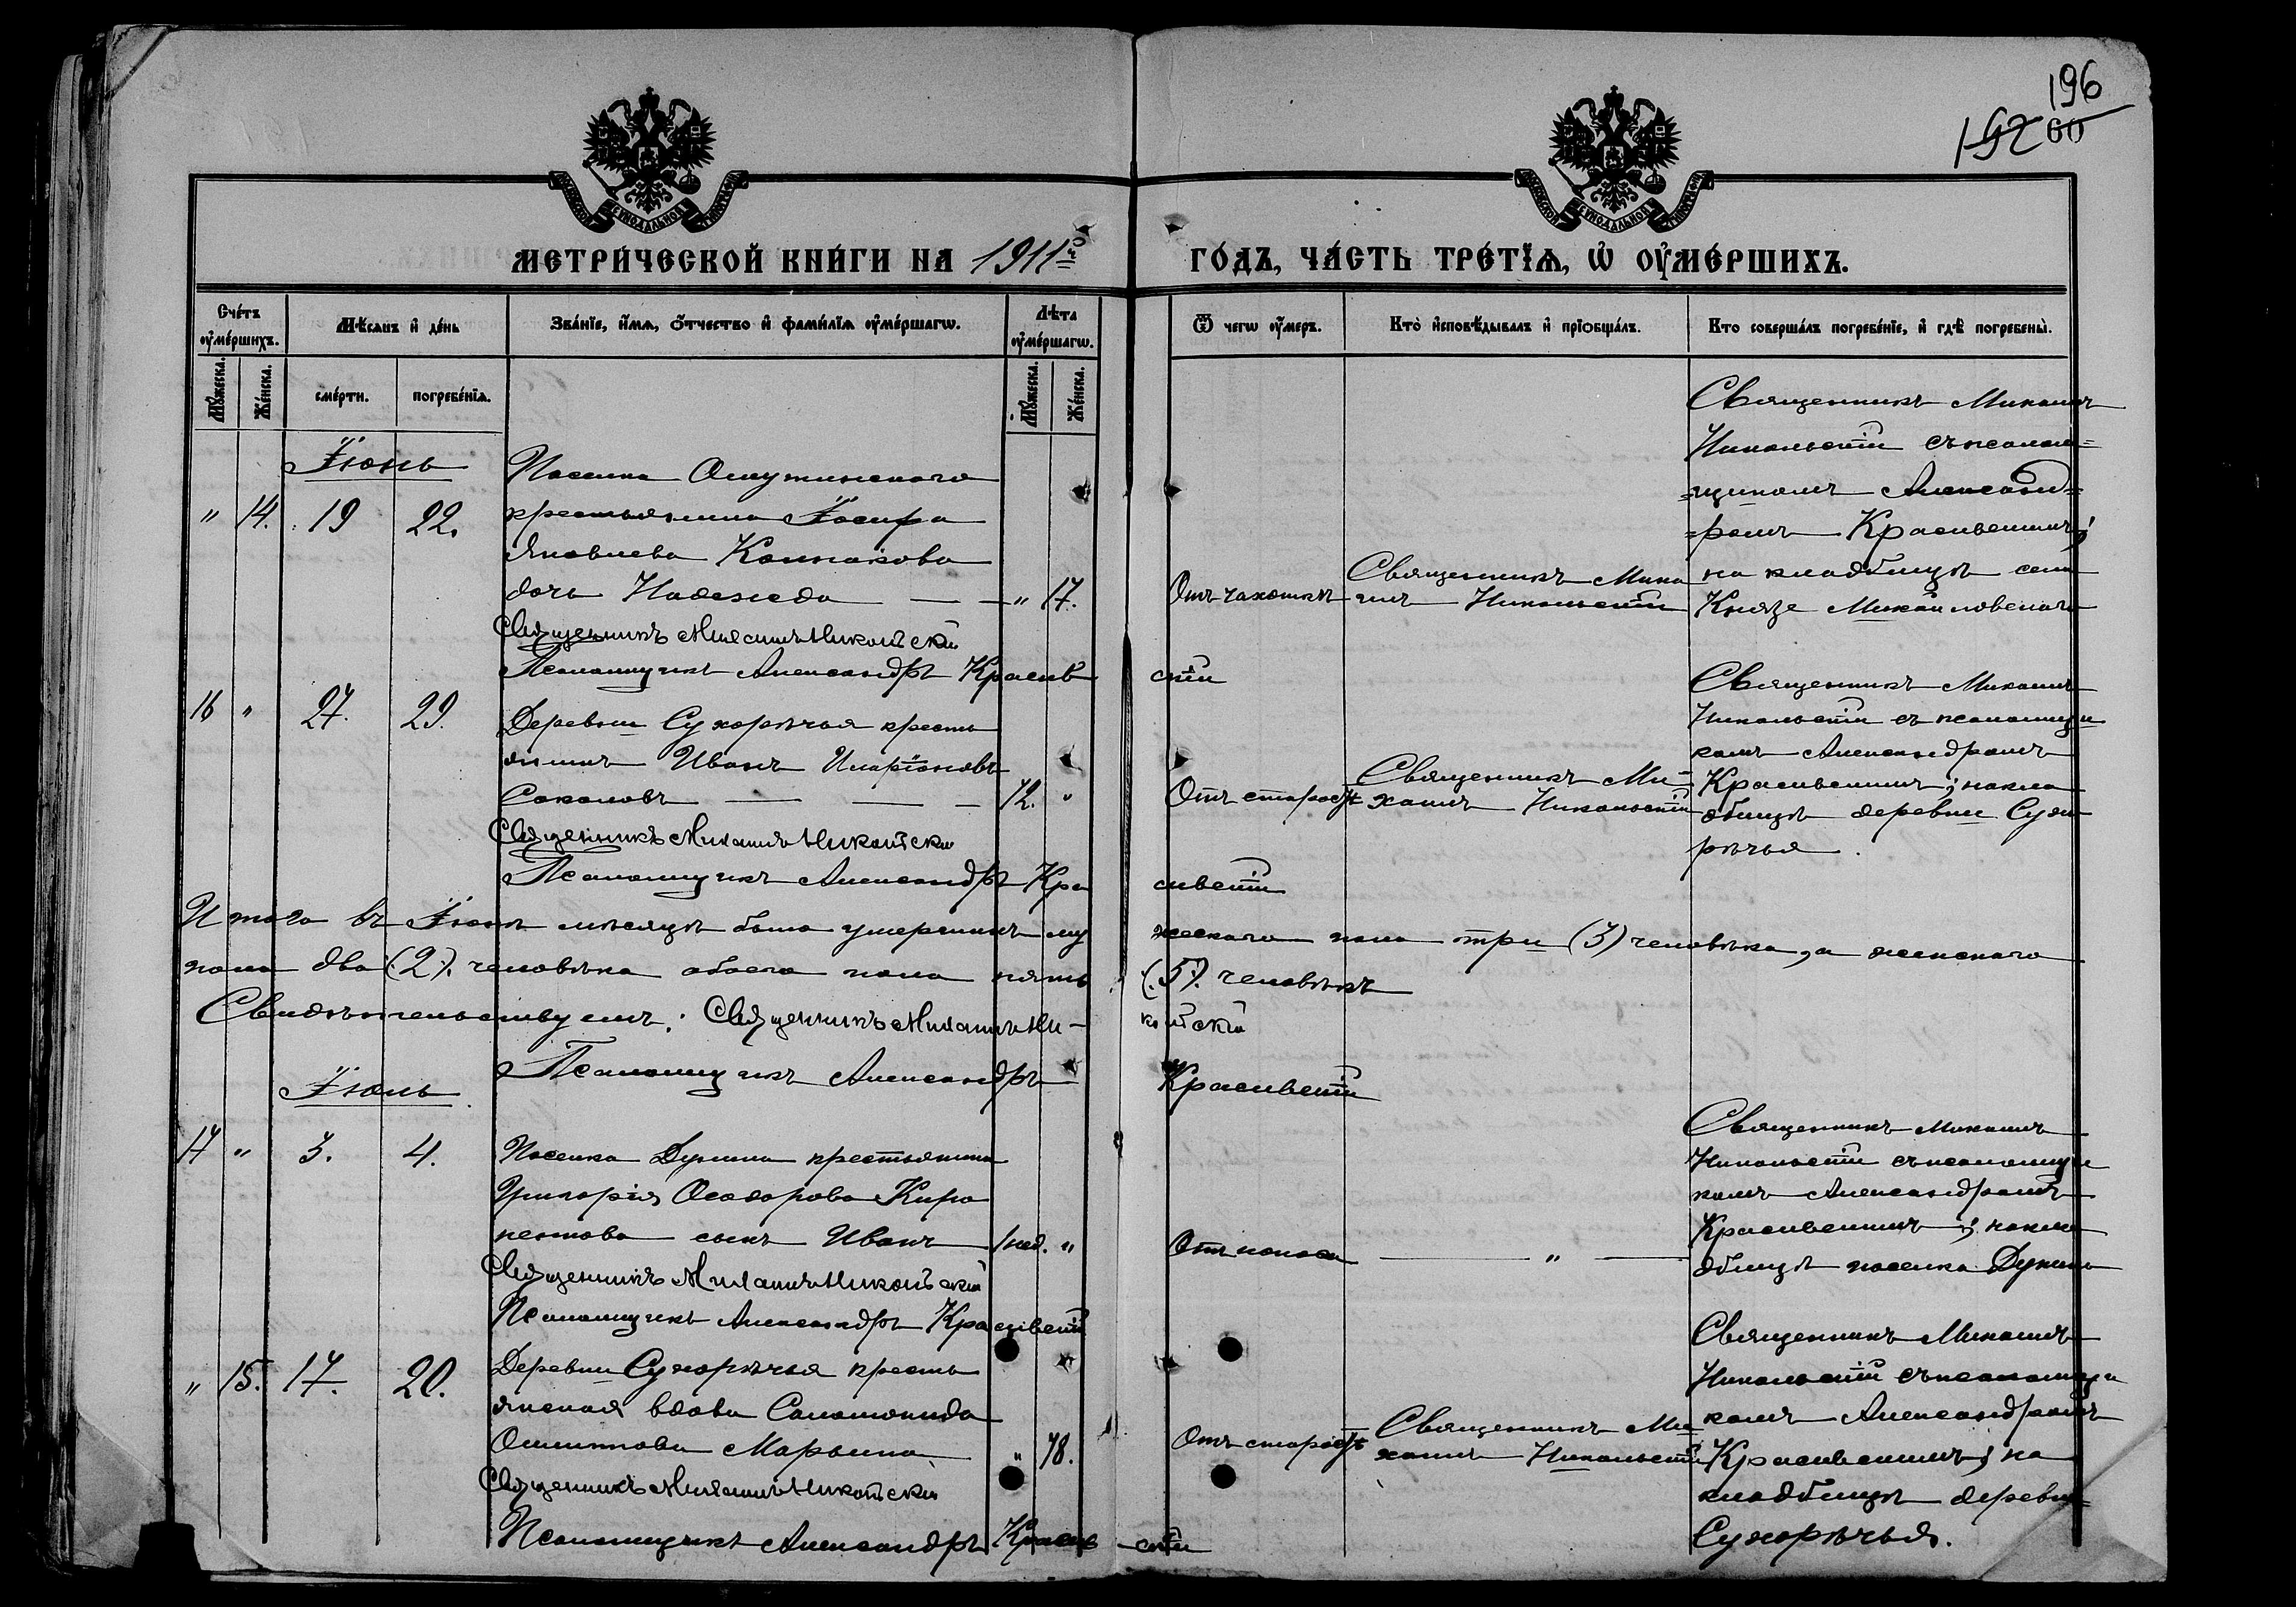 196
192 60
МЕТРИ́ЧЕСКОЙ КНИ́ГИ НА 1911го ГО́ДЪ, ЧА́СТЬ ТРЕ́ТЇѦ, Ѡ҆ ОУ҆МЕ́РШИХЪ.
Сче́тъ оу҆ме́ршихъ.
Мѣ́сѧцъ и҆ де́нь
Зва́нїе, и҆́мѧ, ѻ҆́тчество и҆ фами́лїѧ оу҆ме́ршагѡ.
Лѣ́та оу҆ме́ршагѡ.
Ѿ чегѡ̀ оу҆́меръ.
Кто̀ и҆сповѣ́дывалъ и҆ прїѻбща́лъ.
Кто̀ соверша́лъ погребе́нїе, и҆ гдѣ̀ погребены̀.
Мꙋ́жеска.
Же́нска.
сме́рти.
погребе́нїѧ.
Мꙋ́жеска.
Же́нска.
Іюнь
" 14. 19 22.
Поселка
крестьянина Іосифа
Яковлева
дочь Надежда — — " 17.
Отъ чахотки
Священникъ Миха
илъ Никольскій
Священникъ Михаилъ
Никольскій съ псалом=
=щикомъ Александ=
=ромъ Красивскимъ;
на кладбищѣ села
Князе Михайловскаго
Священникъ Михаилъ Никольскій
Псаломщикъ Александръ Красивскій
16 " 27. 29.
Деревни Сухорѣчья кресть
янинъ Иванъ Иларіоновъ
Соколовъ — — — 72. "
Отъ старости
Священникъ Ми=
хаилъ Никольскій
Священникъ Михаилъ
Никольскій съ псаломщи
комъ Александромъ
Красивскимъ; на кла
дбищѣ деревни Сухо
рѣчья.
Священникъ Михаилъ Никольскій
Псаломщикъ Александръ Красивскій
Итого въ Іюнѣ мѣсяцѣ было умершихъ мужескаго пола три (3) человѣка, а женскаго
пола два (2). человѣка обоего пола пять (5). человѣкъ
Свидѣтельствуемъ: Священникъ Михаилъ Никольскій
Псаломщикъ Александръ Красивскій
Іюль
17 " 3. 4.
Поселка крестьянина
Григорія Ѳеодорова
сынъ Иванъ 1 нед. "
Отъ поноса — " —
Священникъ Михаилъ
Никольскій съ псаломщи
комъ Александромъ
Красивскимъ; на кла
дбищѣ поселка
Священникъ Михаилъ Никольскій
Псаломщикъ Александръ Красивскій
" 15. 17. 20.
Деревни Сухорѣчья кресть
янская вдова Саломонида
Марьина " 78.
Отъ старости
Священникъ Ми
хаилъ Никольскій
Священникъ Михаилъ
Никольскій съ псаломщи
комъ Александромъ
Красивскимъ; на
кладбищѣ деревни
Сухорѣчья.
Священникъ Михаилъ Никольскій
Псаломщикъ Александръ Красивскій